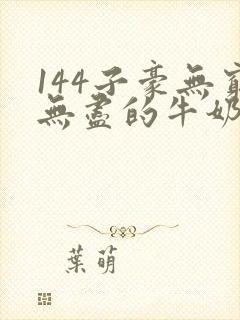 144子豪無窮
無盡的牛奶
葉萌